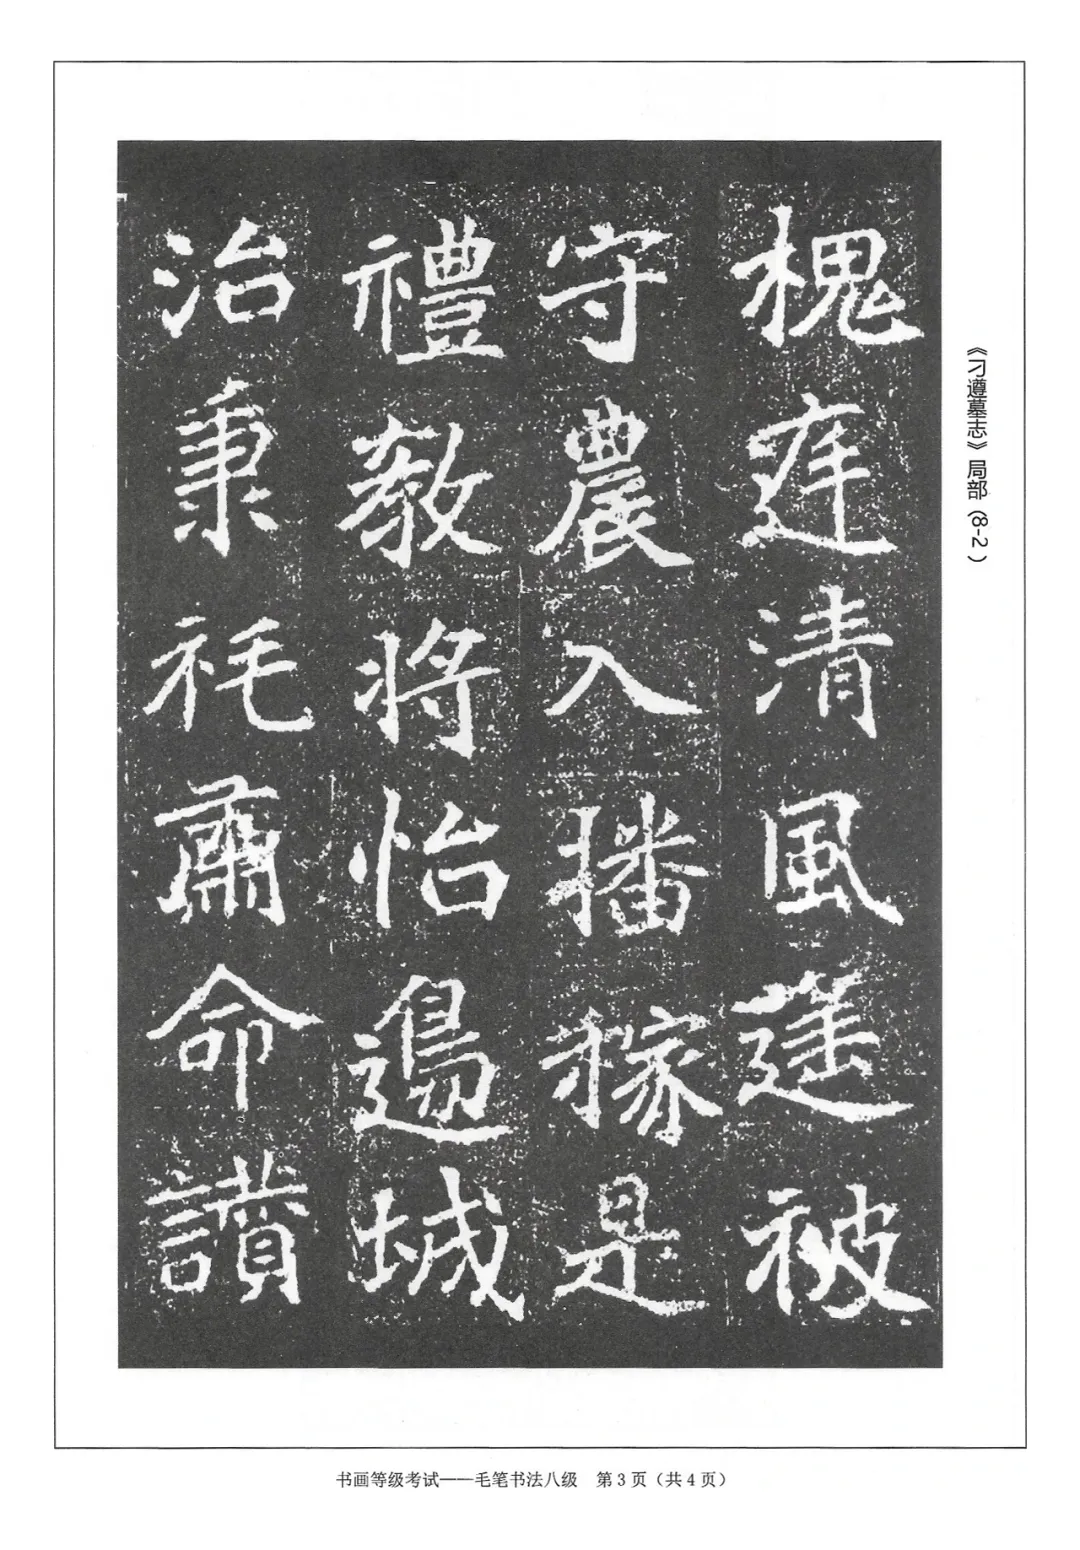 槐庭清風蓬被
守農入播稼是
禮教將怡邊城
治秉旄肅命讃
《刁遵墓志》局部（8-2）
书画等级考试——毛笔书法八级 第3页（共4页）